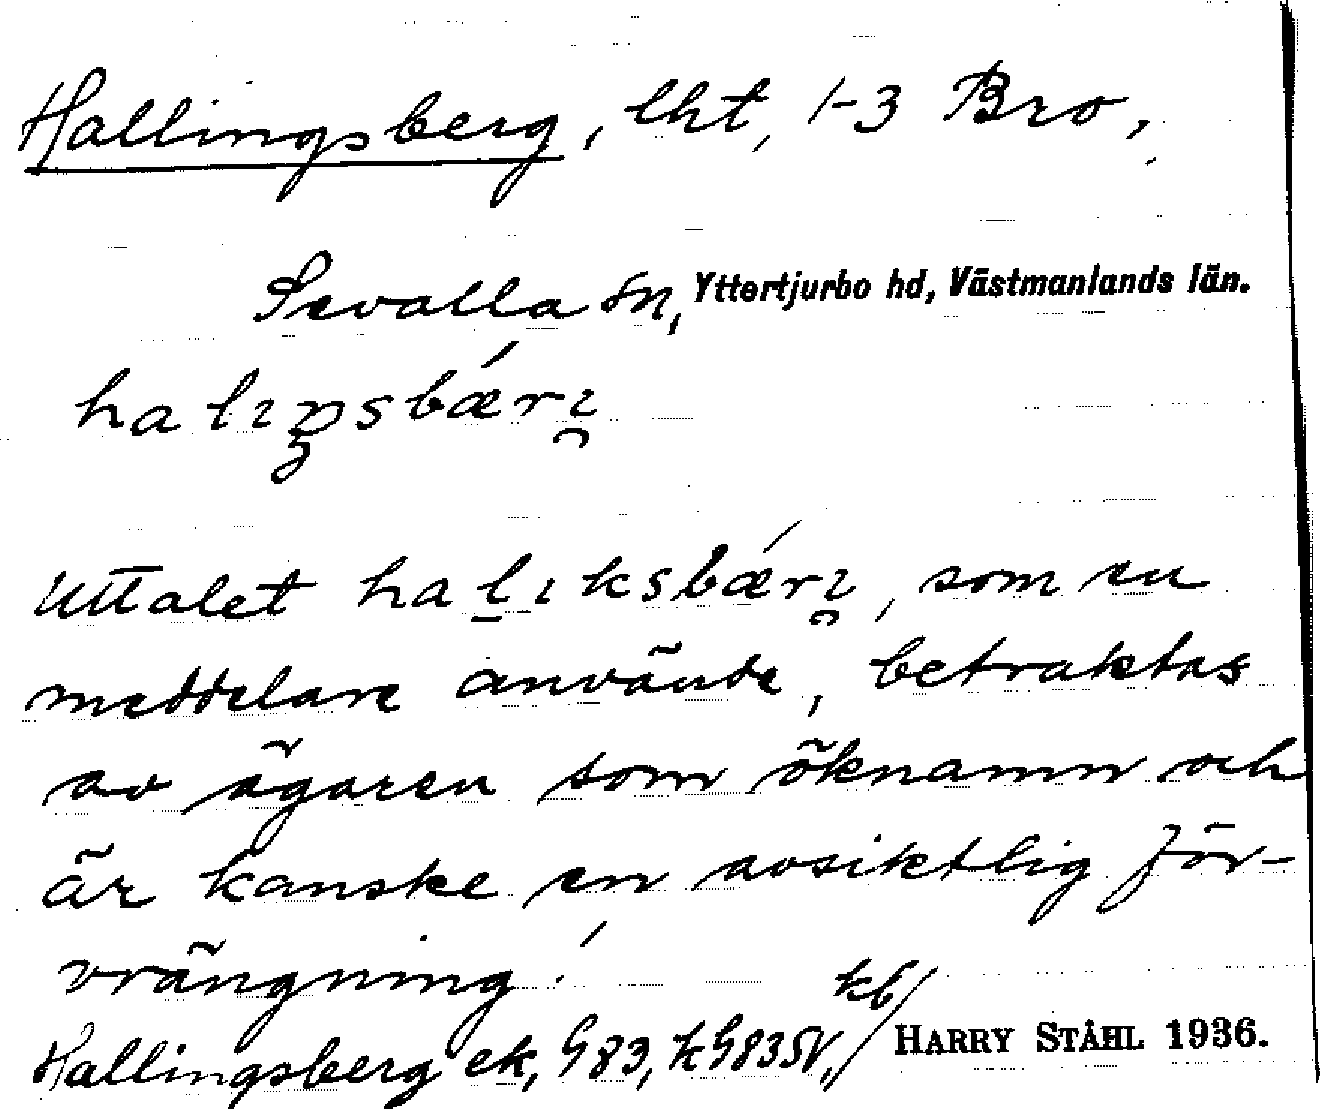 Hallingsberg, lht, 1-3 Bro,
Sevalla sn, Yttertjurbo hd, Västmanlands län.
halıŋsbǽrı̯
Uttalet ha l̠ıksbǽrı̯, som en
meddelare använde, betraktas
av ägaren som öknamn och
är kanske en avsiktlig för-
vrängning!
kb/
Hallingsberg ek, G83, kG83SV, HARRY STÅHL 1936.